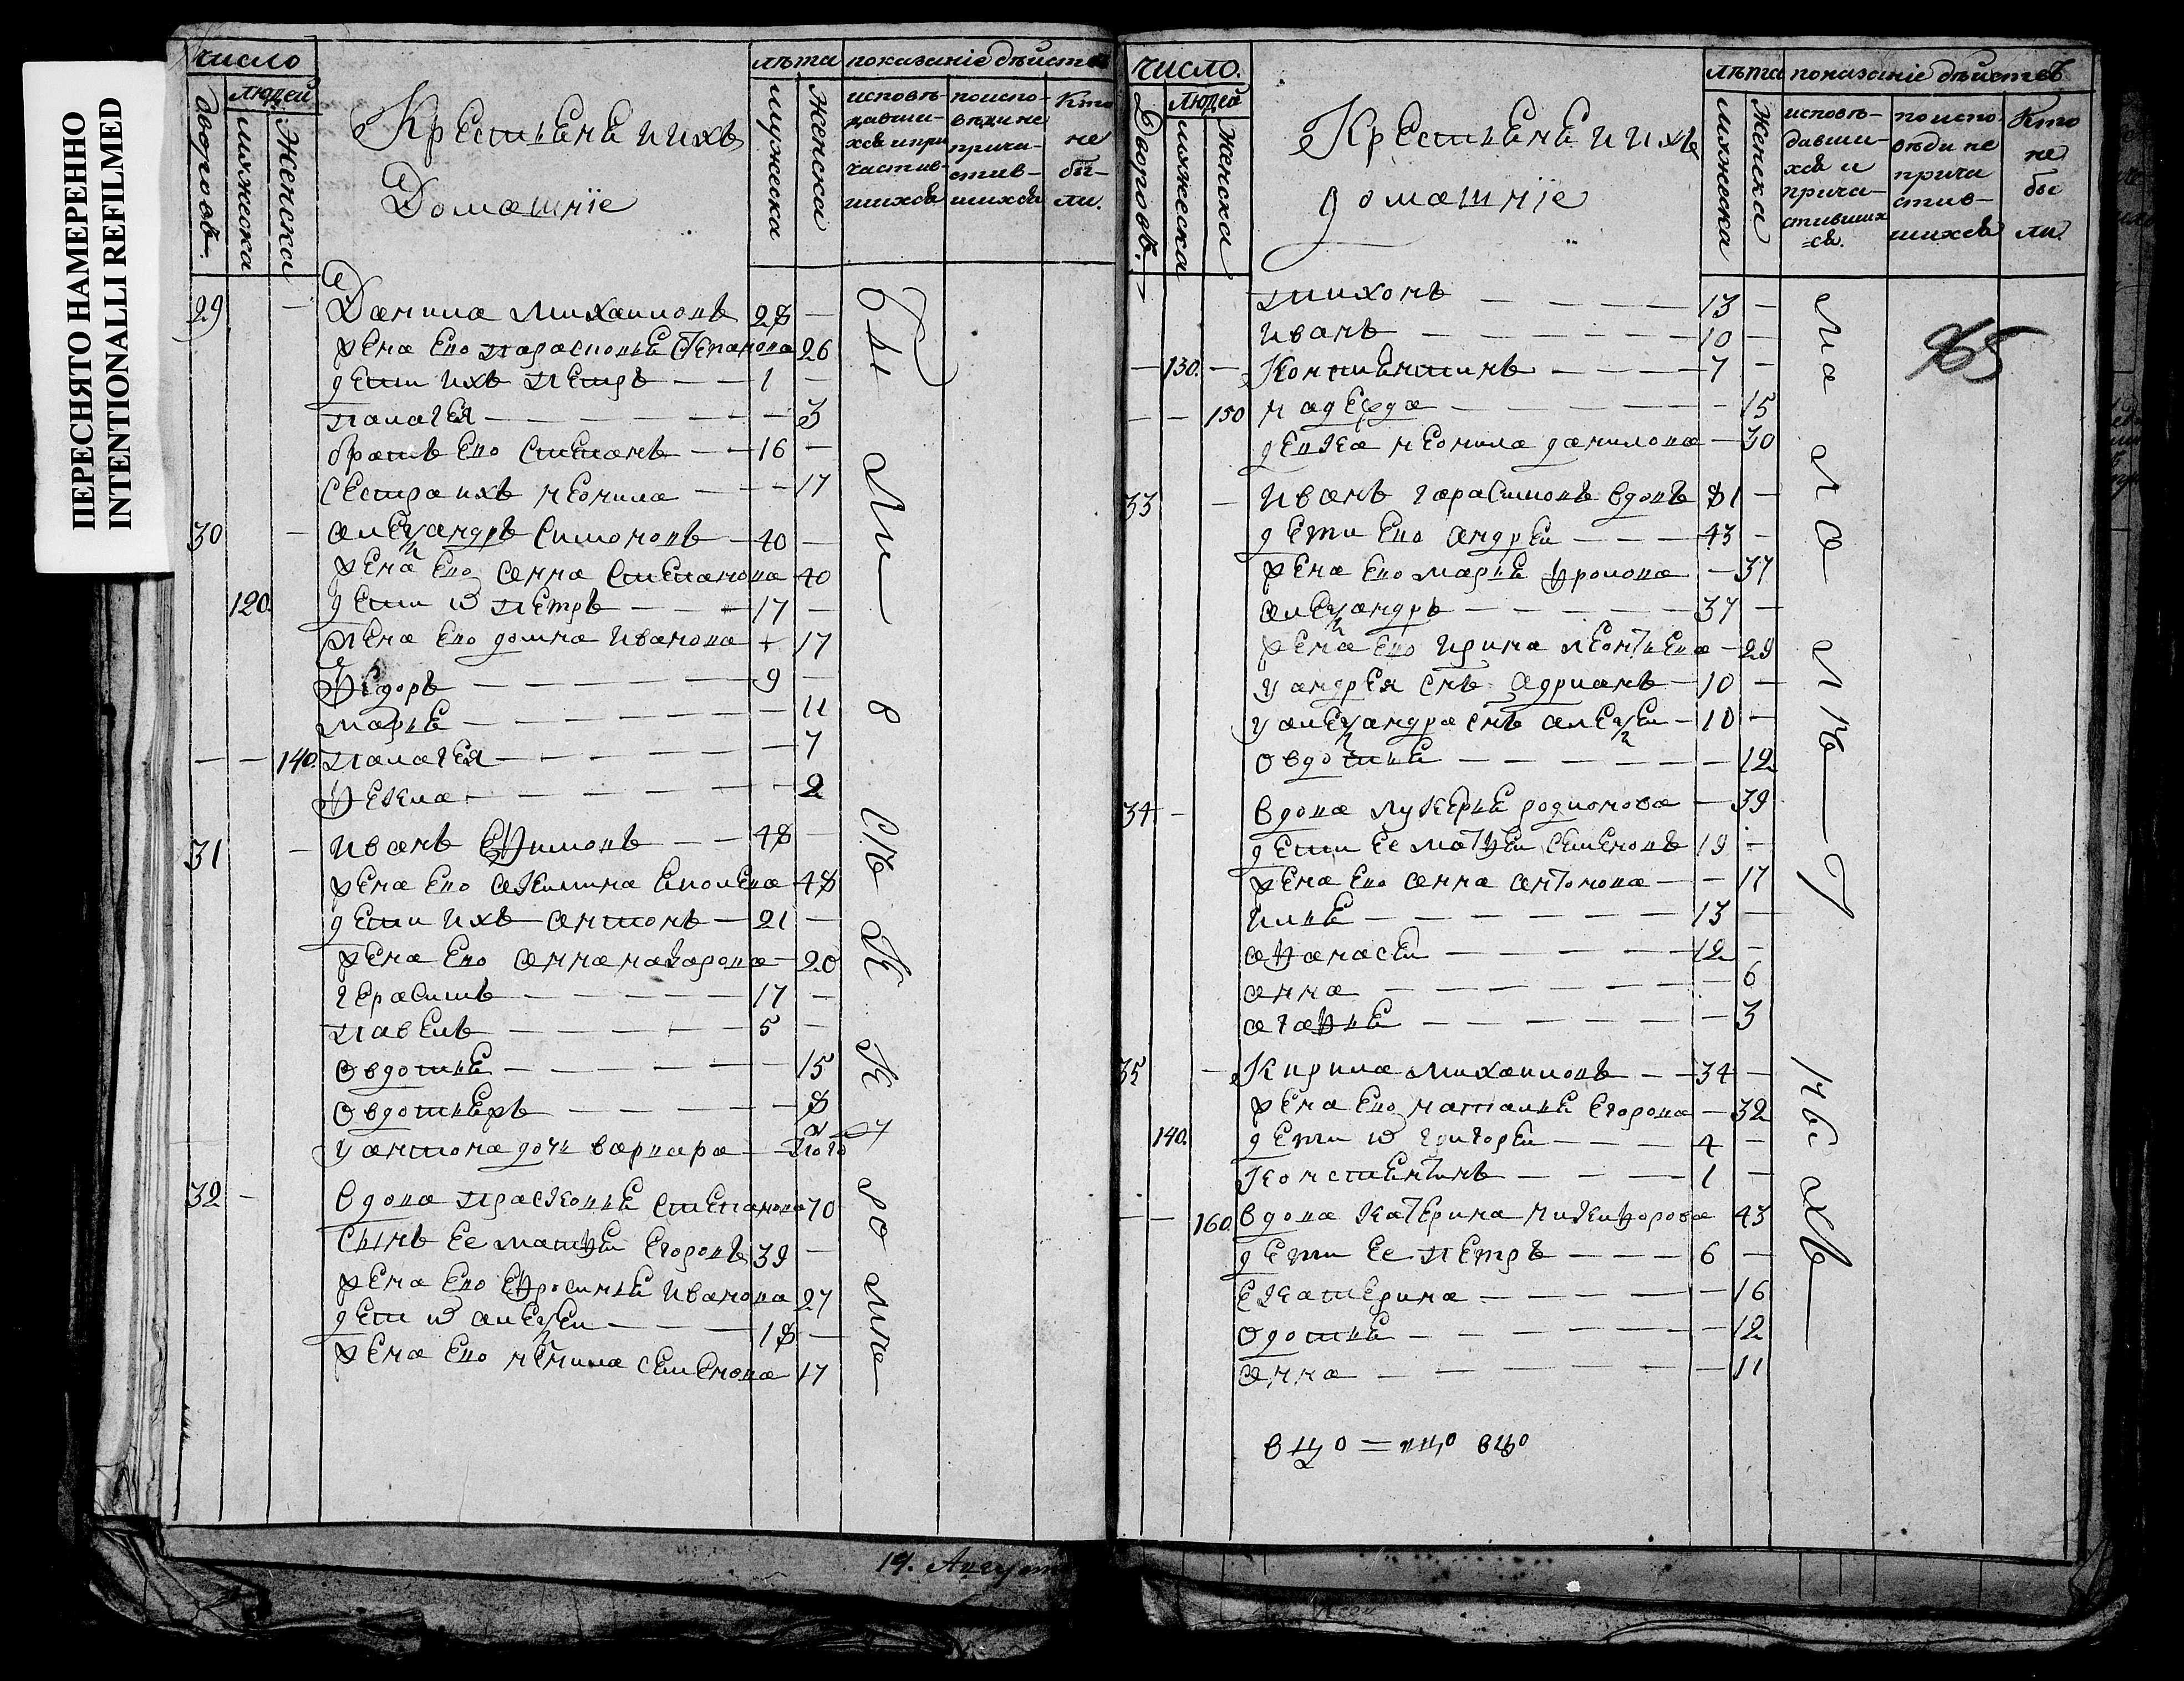 ПЕРЕСНЯТО НАМЕРЕННО
INTENTIONALLI REFILMED
число
людей
дворовъ
мужеска
Женска
Крестьянѣ и ихъ
Домашнїе
лѣта
мужеска
Женска
показаніе дѣйств
исповѣ-
давши-
хся и при
частив-
шихся
по испо-
вѣди не
прича-
стив-
шихся
Кто
не
бы-
ли.
29 Данила Михаиловъ 28 —
жена Его Парасковья Степанова 26
дети ихъ Петръ — 1 —
Палагея — 3
братъ Его Степанъ — 16 —
Сестра ихъ Неонила — 17
30 Александръ Симоновъ — 40 —
жена Его Анна Степанова 40
120. дети ѿ Петръ — 17 —
жена Его домна Иванова — 17
Ѳедоръ — 9 —
Марья — 11
— — 140. Палагея — 7
Ѳекла — 2
31 Иванъ Еѳимовъ — 48 —
жена Его Акилина 48
дети ихъ Антонъ — 21 —
жена Его Анна Макарова — 20
Герасимъ — 17 —
Павелъ — 5 —
Овдотья — 15
Овдотьяжъ — 8
у Антона дочь варвара —
32 — Вдова Прасковья Степанова 70
Сынъ Ее Матѳеи Егоровъ 39 —
жена Его Еѳросинья Иванова 27
дети ѿ Алексеи — 18 —
жена Его Неонила Семенова 17
были
в
Св
19. Август
число.
Людей
Дворовъ.
мужеска
Женска
Крестьянѣ и ихъ
домашнїе
лѣта
мужеска
Женска
показаніе дѣйствъ
исповѣ-
давши-
хся и
прича-
стивших
=ся.
по испо-
вѣди не
прича
стив-
шихся
Кто
не
бы
ли.
Тихонъ — 13 —
Иванъ — 10 —
— 130. — Констентинъ — 7 —
— — 150 Надежда — 15
девка Неонила данилова — 30
33 — Иванъ Гарасимовъ вдовъ 81 —
дети Его Андреи — 43 —
жена Его Марья Ѳролова — 37
Александръ — 37 —
жена Его Ирина Леонтьева — 29
у Андрея Снъ Адрианъ — 10 —
у Александра Снъ Алексеи — 10 —
Овдотья — 12
34 — Вдова Лукерья родионова — 39
дети Ее Матѳеи Семеновъ 19 —
жена Его Анна Антонова — 17
Илья — 13 —
Аѳанасеи — 12 —
Анна — 6
Агаѳья — 3
35 — Кирила Михаиловъ — 34 —
жена Его Наталья Егорова — 32
140. дети ѿ Григореи — 4 —
Констентинъ — 1 —
— — 160. Вдова Катерина Никиѳорова 43
дети Ее Петръ — 6 —
Екатерина — 16
Одотья — 12
Анна — 11